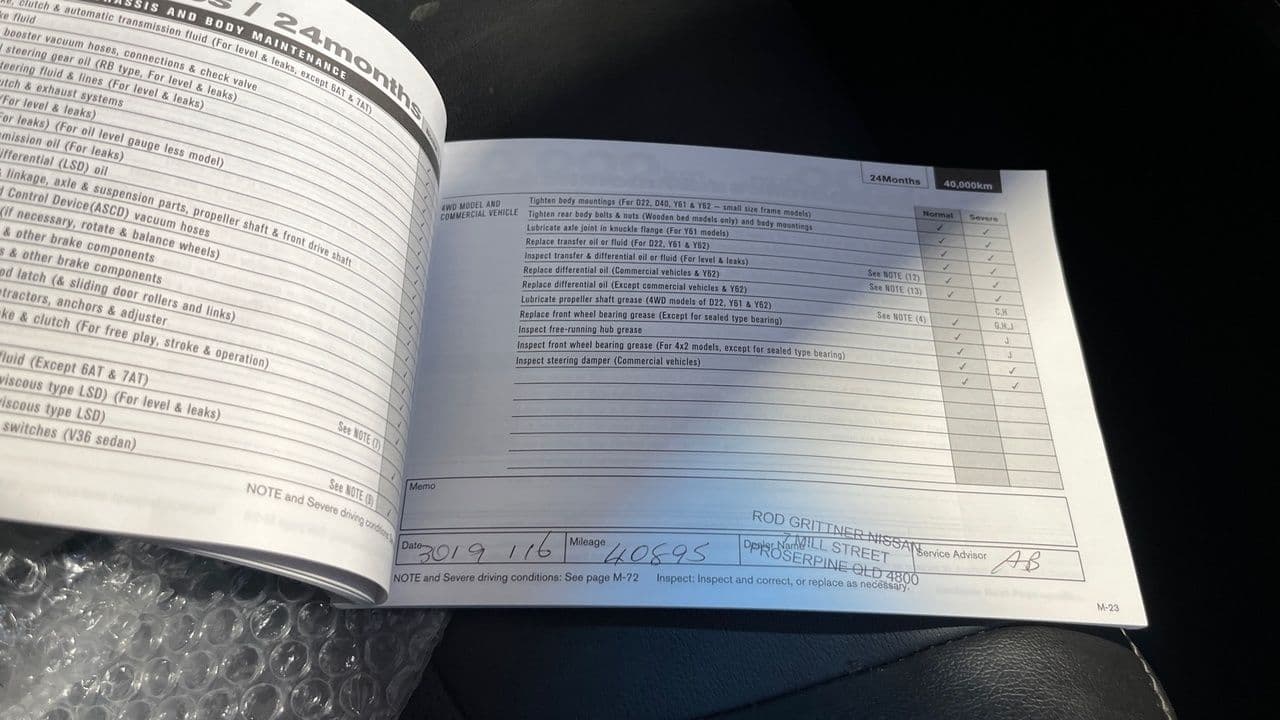 s / 24months
ASSIS AND BODY MAINTENANCE
ke, clutch & automatic transmission fluid (For level & leaks, except 6AT & 7AT)
ke fluid
booster vacuum hoses, connections & check valve
steering gear oil (RB type, For level & leaks)
teering fluid & lines (For level & leaks)
utch & exhaust systems
(For level & leaks)
or leaks) (For oil level gauge less model)
mission oil (For leaks)
ifferential (LSD) oil
linkage, axle & suspension parts, propeller shaft & front drive shaft
Control Device(ASCD) vacuum hoses
(if necessary, rotate & balance wheels)
& other brake components
s & other brake components
od latch (& sliding door rollers and links)
tractors, anchors & adjuster
ke & clutch (For free play, stroke & operation)
fluid (Except 6AT & 7AT)
viscous type LSD) (For level & leaks) See NOTE (7)
viscous type LSD)
switches (V36 sedan) See NOTE (9)
NOTE and Severe driving conditions
24Months 40,000km
Normal Severe
4WD MODEL AND COMMERCIAL VEHICLE
Tighten body mountings (For D22, D40, Y61 & Y62 – small size frame models) ✓ ✓
Tighten rear body bolts & nuts (Wooden bed models only) and body mountings ✓ ✓
Lubricate axle joint in knuckle flange (For Y61 models) ✓ ✓
Replace transfer oil or fluid (For D22, Y61 & Y62) ✓ ✓
Inspect transfer & differential oil or fluid (For level & leaks) ✓ ✓
Replace differential oil (Commercial vehicles & Y62) See NOTE (12) ✓ ✓
Replace differential oil (Except commercial vehicles & Y62) See NOTE (13) C,H
Lubricate propeller shaft grease (4WD models of D22, Y61 & Y62) ✓ G,H,J
Replace front wheel bearing grease (Except for sealed type bearing) See NOTE (4) ✓ J
Inspect free-running hub grease ✓ J
Inspect front wheel bearing grease (For 4x2 models, except for sealed type bearing) ✓ ✓
Inspect steering damper (Commercial vehicles) ✓ ✓
Memo
Date 30/9/16 Mileage 40895 Dealer Name Service Advisor AB
ROD GRITTNER NISSAN
7 MILL STREET
PROSERPINE QLD 4800
NOTE and Severe driving conditions: See page M-72 Inspect: Inspect and correct, or replace as necessary.
M-23